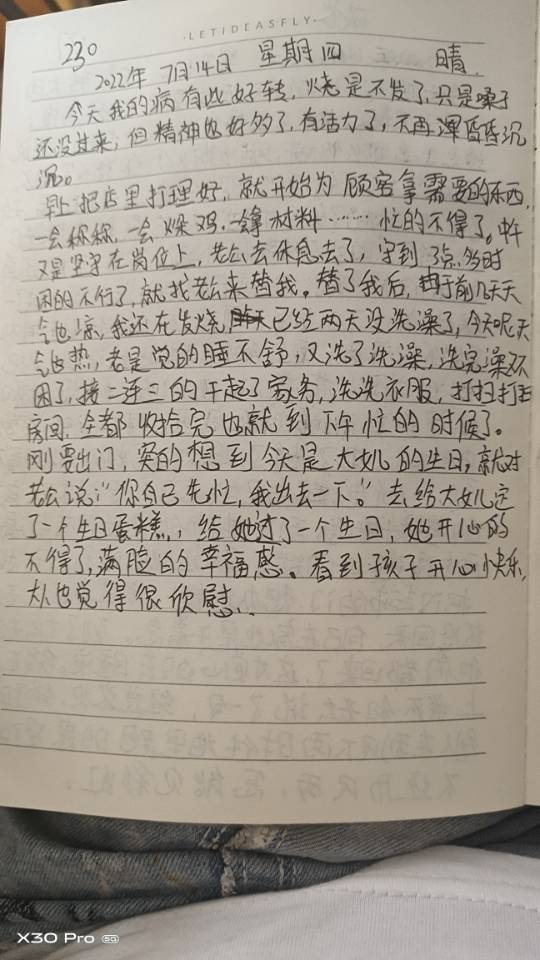 ·LETIDEASFLY·
230
2022年 7月14日 星期四 晴
今天我的病有些好转,烧是不发了,只是嗓子
还没过来,但精神也好多了,有活力了,不再浑昏昏沉
沉。
早上把店里打理好,就开始为顾客拿需要的东西,
一会称称,一会烫鸡,一会拿材料……忙的不得了。中午
又是坚守在岗位上,老公去休息去了,守到3点多时
困的不行了,就找老公来替我。替了我后,由于前几天天
气也凉,我还在发烧,已经两天没洗澡了,今天呢天
气也热,老是觉的睡不舒,又洗了洗澡,洗完澡又不
困了,接二连三的干起了家务,洗洗衣服,打扫打扫
房间,全都收拾完也就到下午忙的时候了。
刚要出门,突的想到今天是大儿的生日,就对
老公说:“你自己先忙,我出去一下。”去给大儿定
了一个生日蛋糕,给她过了一个生日,她开心的
不得了,满脸的幸福感。看到孩子开心快乐,
大人也觉得很欣慰。
X30 Pro 5G